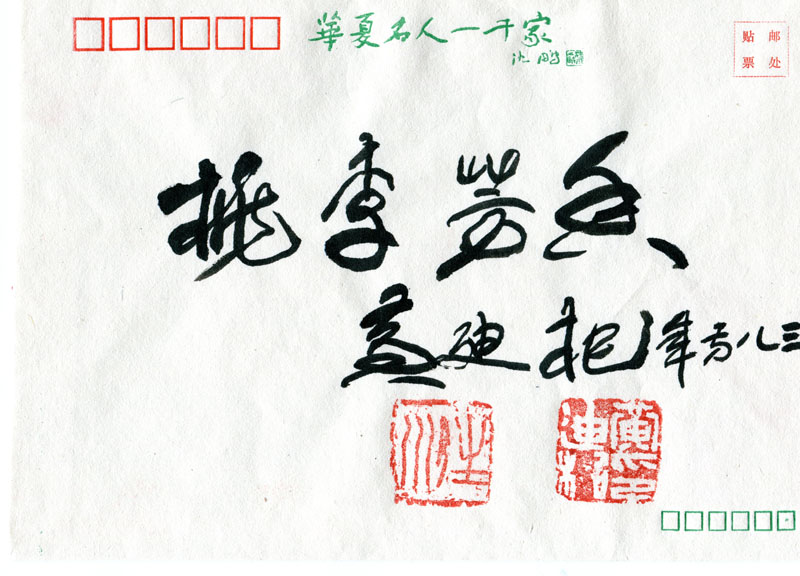 華夏名人一千家
沈鹏
贴邮
票处
桃李芳香
黄迪杞年方八三